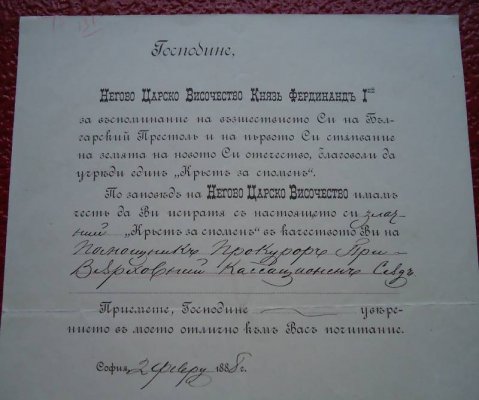 Господине,
Негово Царско Височество Князь Фердинандъ Iий
за въспоминание на възшествието Си на Бъл-
гарский Престолъ и на първото Си стѫпвание
на землята на новото Си отечество, благоволи да
учрѣди единъ „Кръстъ за споменъ".
По заповѣдь на Негово Царско Височество имамъ
честь да Ви испратя съ настоящето си злат-
ний „Кръстъ за споменъ" въ качеството Ви на
Помощникъ Прокуроръ При
Върховний Кассационенъ Сѫдъ.
Приемете, Господине увѣре-
нието въ моето отлично къмъ Васъ почитание.
София, 2 Февру 1888 г.